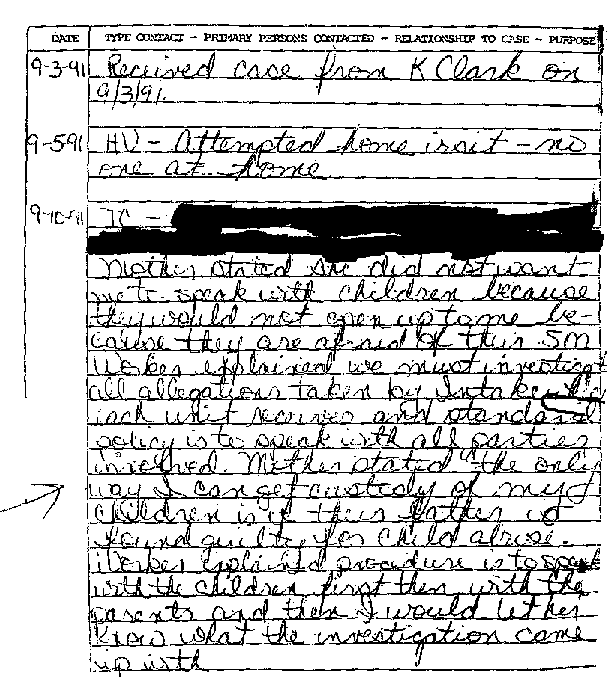 DATE TYPE CONTACT - PRIMARY PERSONS CONTACTED - RELATIONSHIP TO CASE - PURPOSE
9-3-91 Received case from K Clark on
9/3/91.
9-5-91 HV - Attempted home visit - no
one at home
9-10-91 TC -
Mother stated she did not want
me to speak with children because
they would not open up to me be-
cause they are afraid of their SM
Worker explained we must investigat
all allegations taken by Intake
each unit receives and standard
policy is to speak with all parties
involved. Mother stated "the only
way I can get custody of my
children is if their father is
found guilty for child abuse.
Worker explained procedure is to speak
with the children first then with the
parents and then I would let her
know what the investigation came
up with